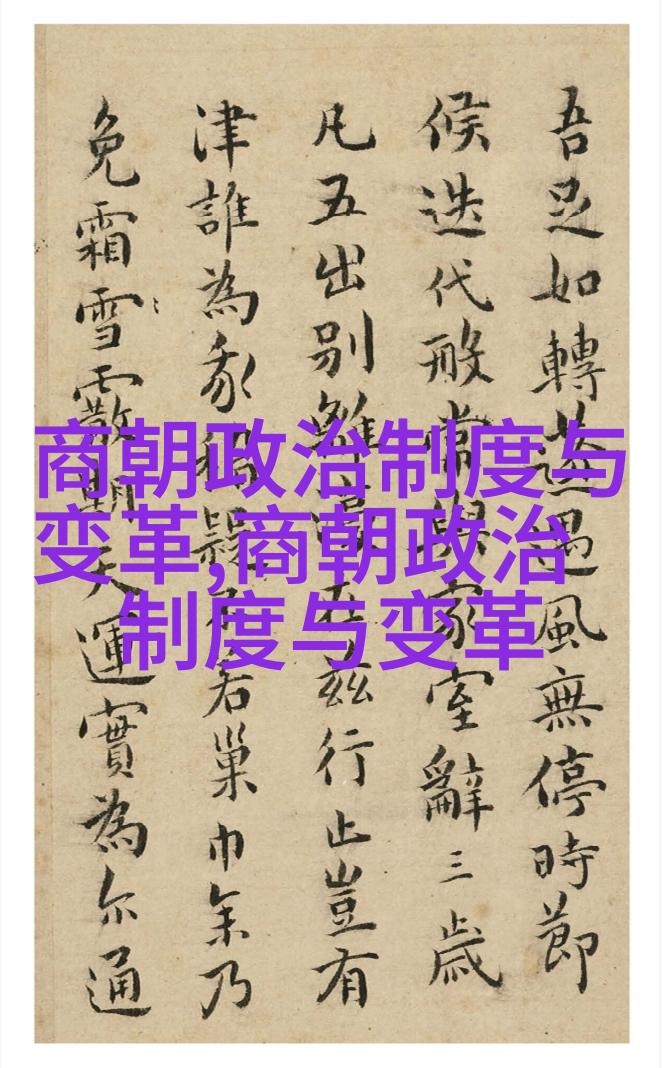 吾足如轉蓬遇風無停時節
候迭代常與家室辭三歲
凡五出別離在茲行止豈有
津誰為疑若巢乃
免霜雪霰天運實為尔通
商朝政治制度与
变革,商朝政治
制度与变革